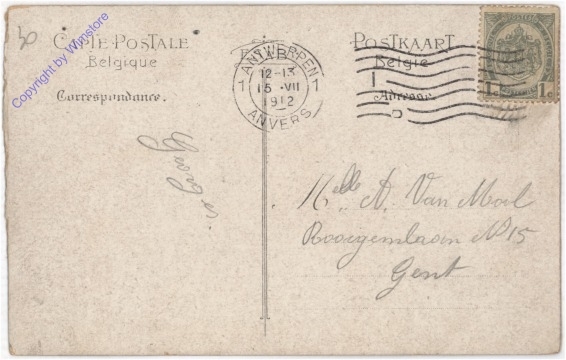 30
Copyright by Wimstore
CARTE POSTALE
Belgique
Correspondance.
1 ANTWERPEN 1
12-13
15 VII
1912
ANVERS
POSTKAART
België
Adresse
1c 1c
Mlle A. Van Mael
No 15
Gent